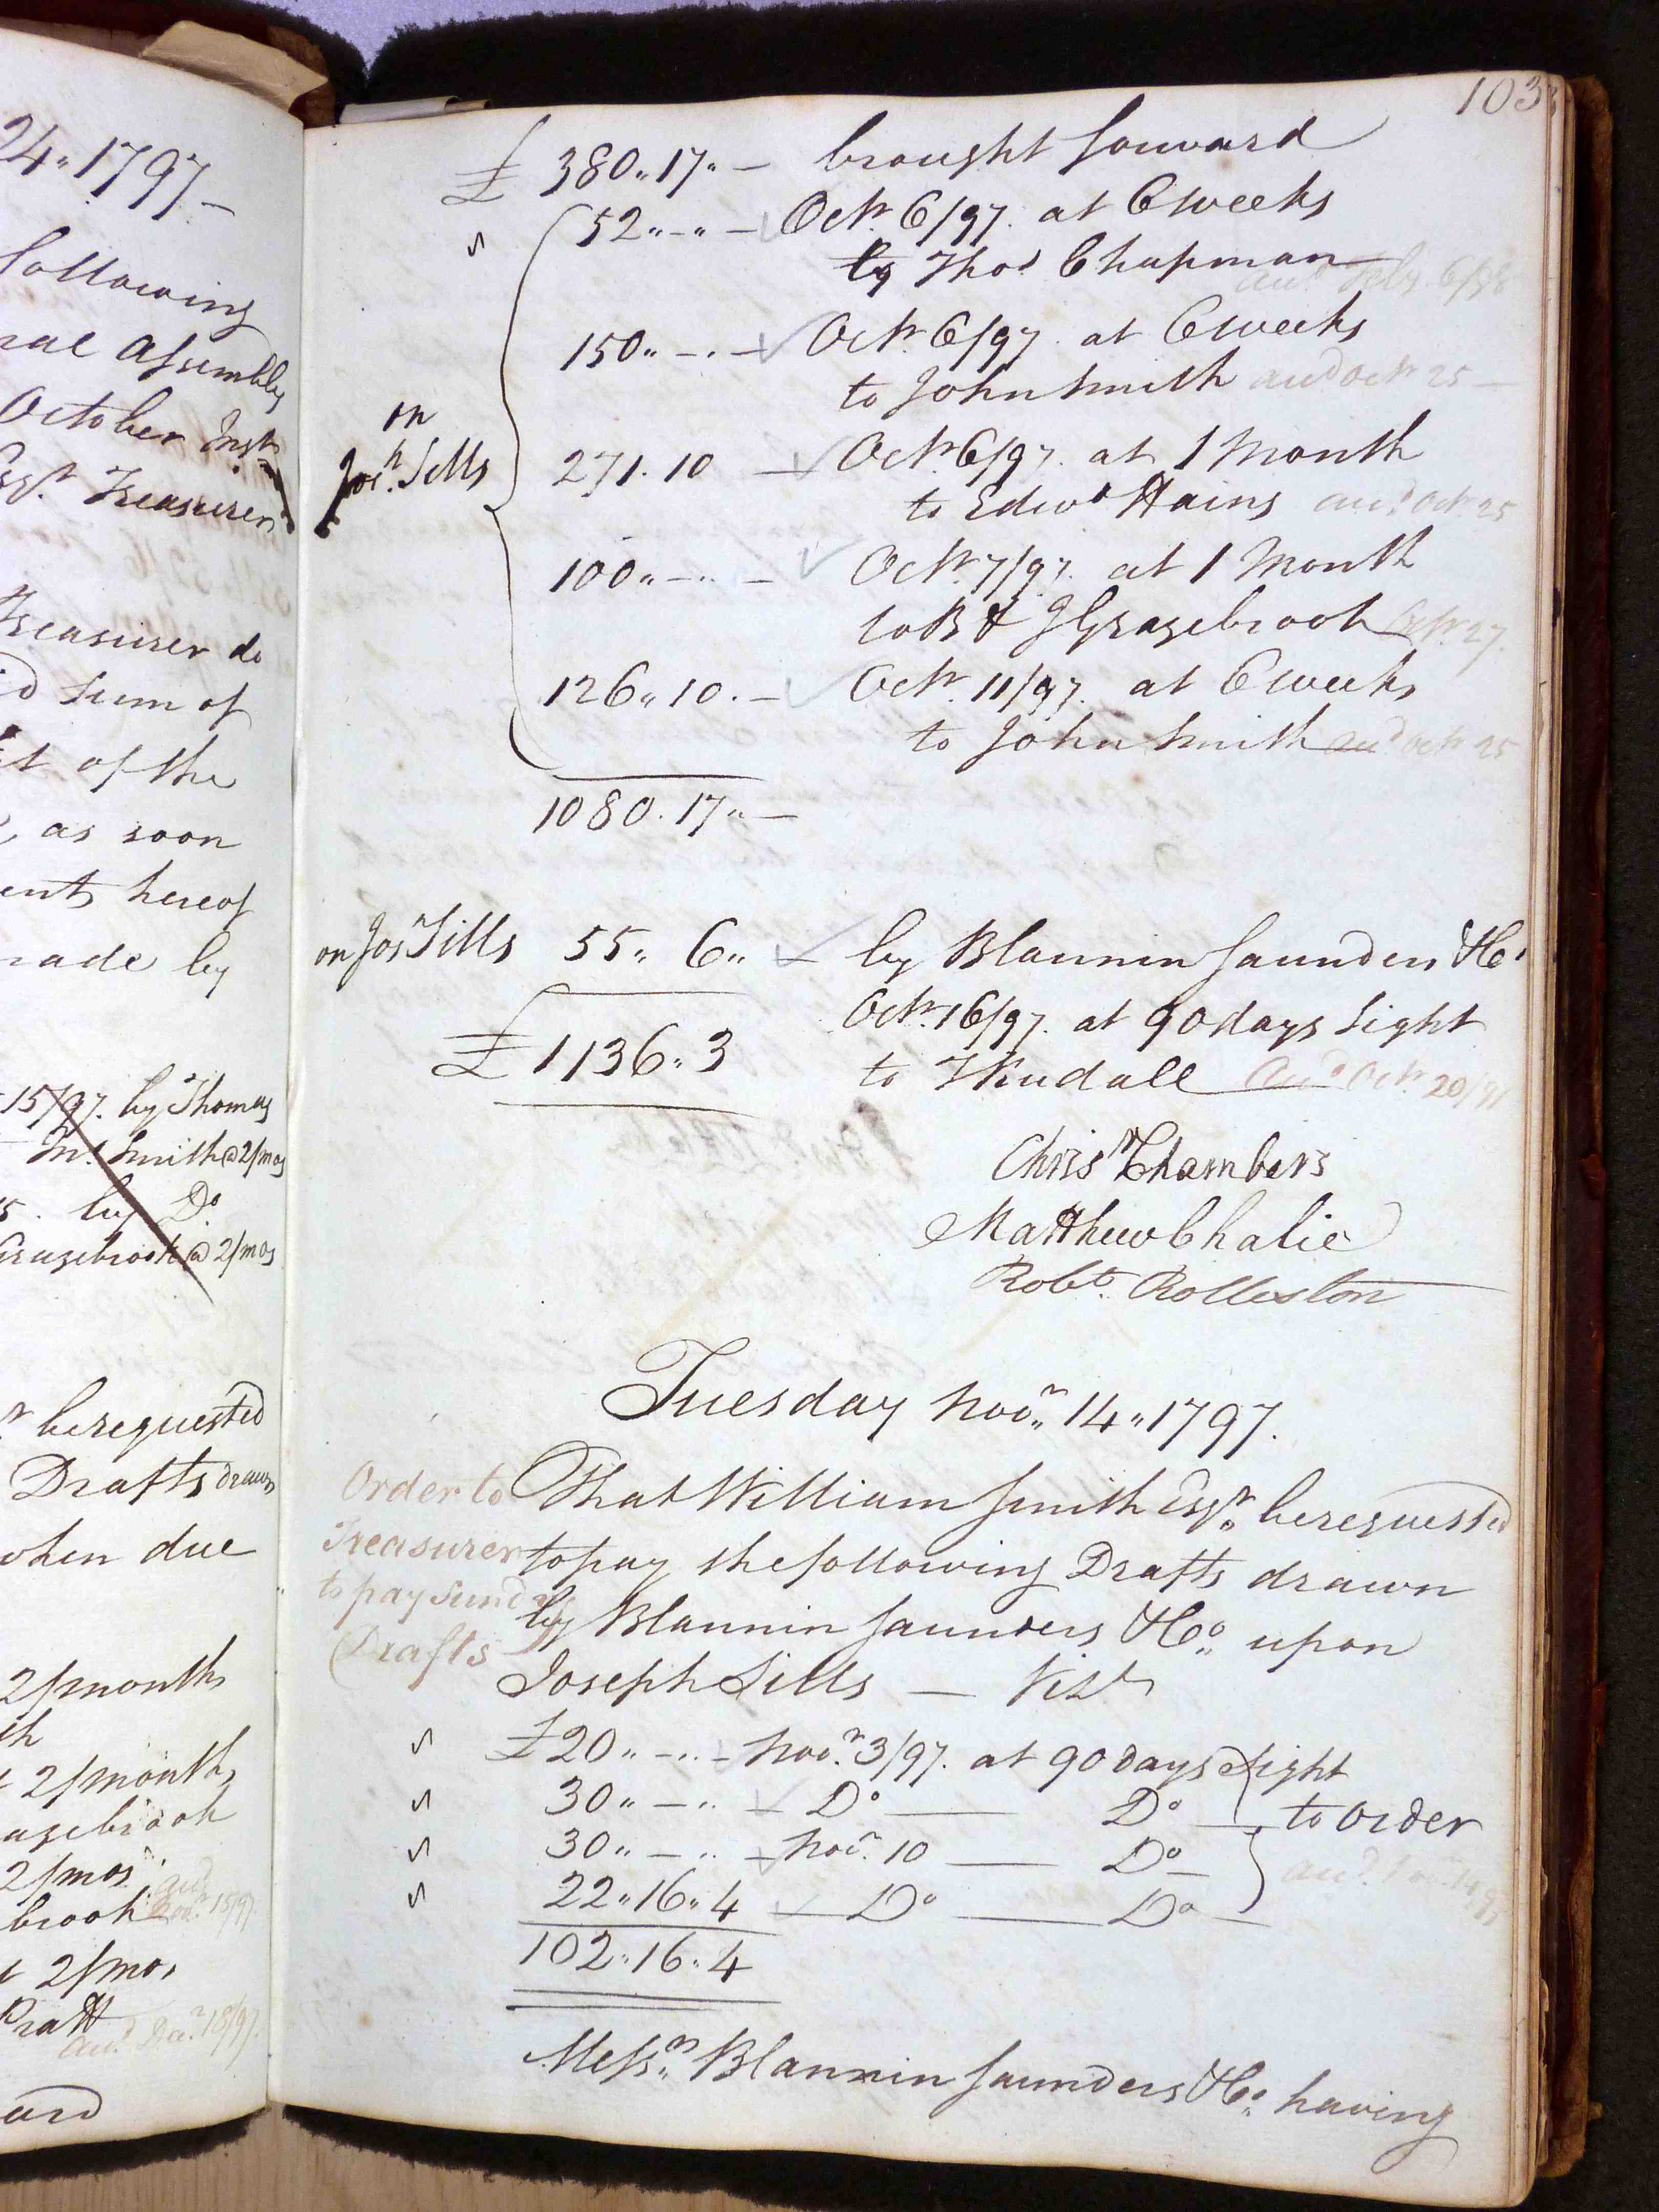 24 " 1797 —
following
ral Assembly
October Inst
Esqr. Treasurer
Treasurer do
sum of
t of the
, as soon
ents hereof
made by
15/97. by Thomas
Smith @ 2/mos
5. by Do
Grazebrook @ 2/mos
be requested
Drafts drawn
when due
2/months
th
t 2/months
azebrook
2/mos
brook
t 2/mos
Pratt
ard
103
£ 380 " 17 " — brought forward
52 " — " — Octr. 6/97. at 6 weeks
by Thos Chapman
150 " — . — Octr. 6/97. at 6 weeks
to John Smith aud Octr 25 —
on
Josh. Sills
271 . 10 — Octr. 6/97. at 1 Month
to Edwd Hains aud Octr 25
100 " — " — Octr. 7/97. at 1 Month
to B & J Grazebrook Octr 27.
126 " 10 . — Octr. 11/97. at 6 weeks
to John Smith aud Octr 25
1080 . 17 " —
on Josh Sills 55 " 6 " — by Blannin Saunders & Co
Octr. 16/97. at 90 days Sight
£ 1136 " 3
to T Kindall aud Octr 20/97
Chrisr Chambers
Matthew Chalie
Robt. Rolleston
Tuesday Novr. 14 " 1797.
Order to
Treasurer
to pay sundry
Drafts
That William Smith Esqr. be requested
to pay the following Drafts drawn
by Blannin Saunders & Co. upon
Joseph Sills — Vizt
£20 " — " — Novr. 3/97. at 90 days Sight
30 " — " — Do — Do — to Order
30 " — " — Novr. 10 — Do —
22 " 16 " 4 — Do — Do —
102 " 16 " 4
Messrs. Blannin Saunders & Co. having